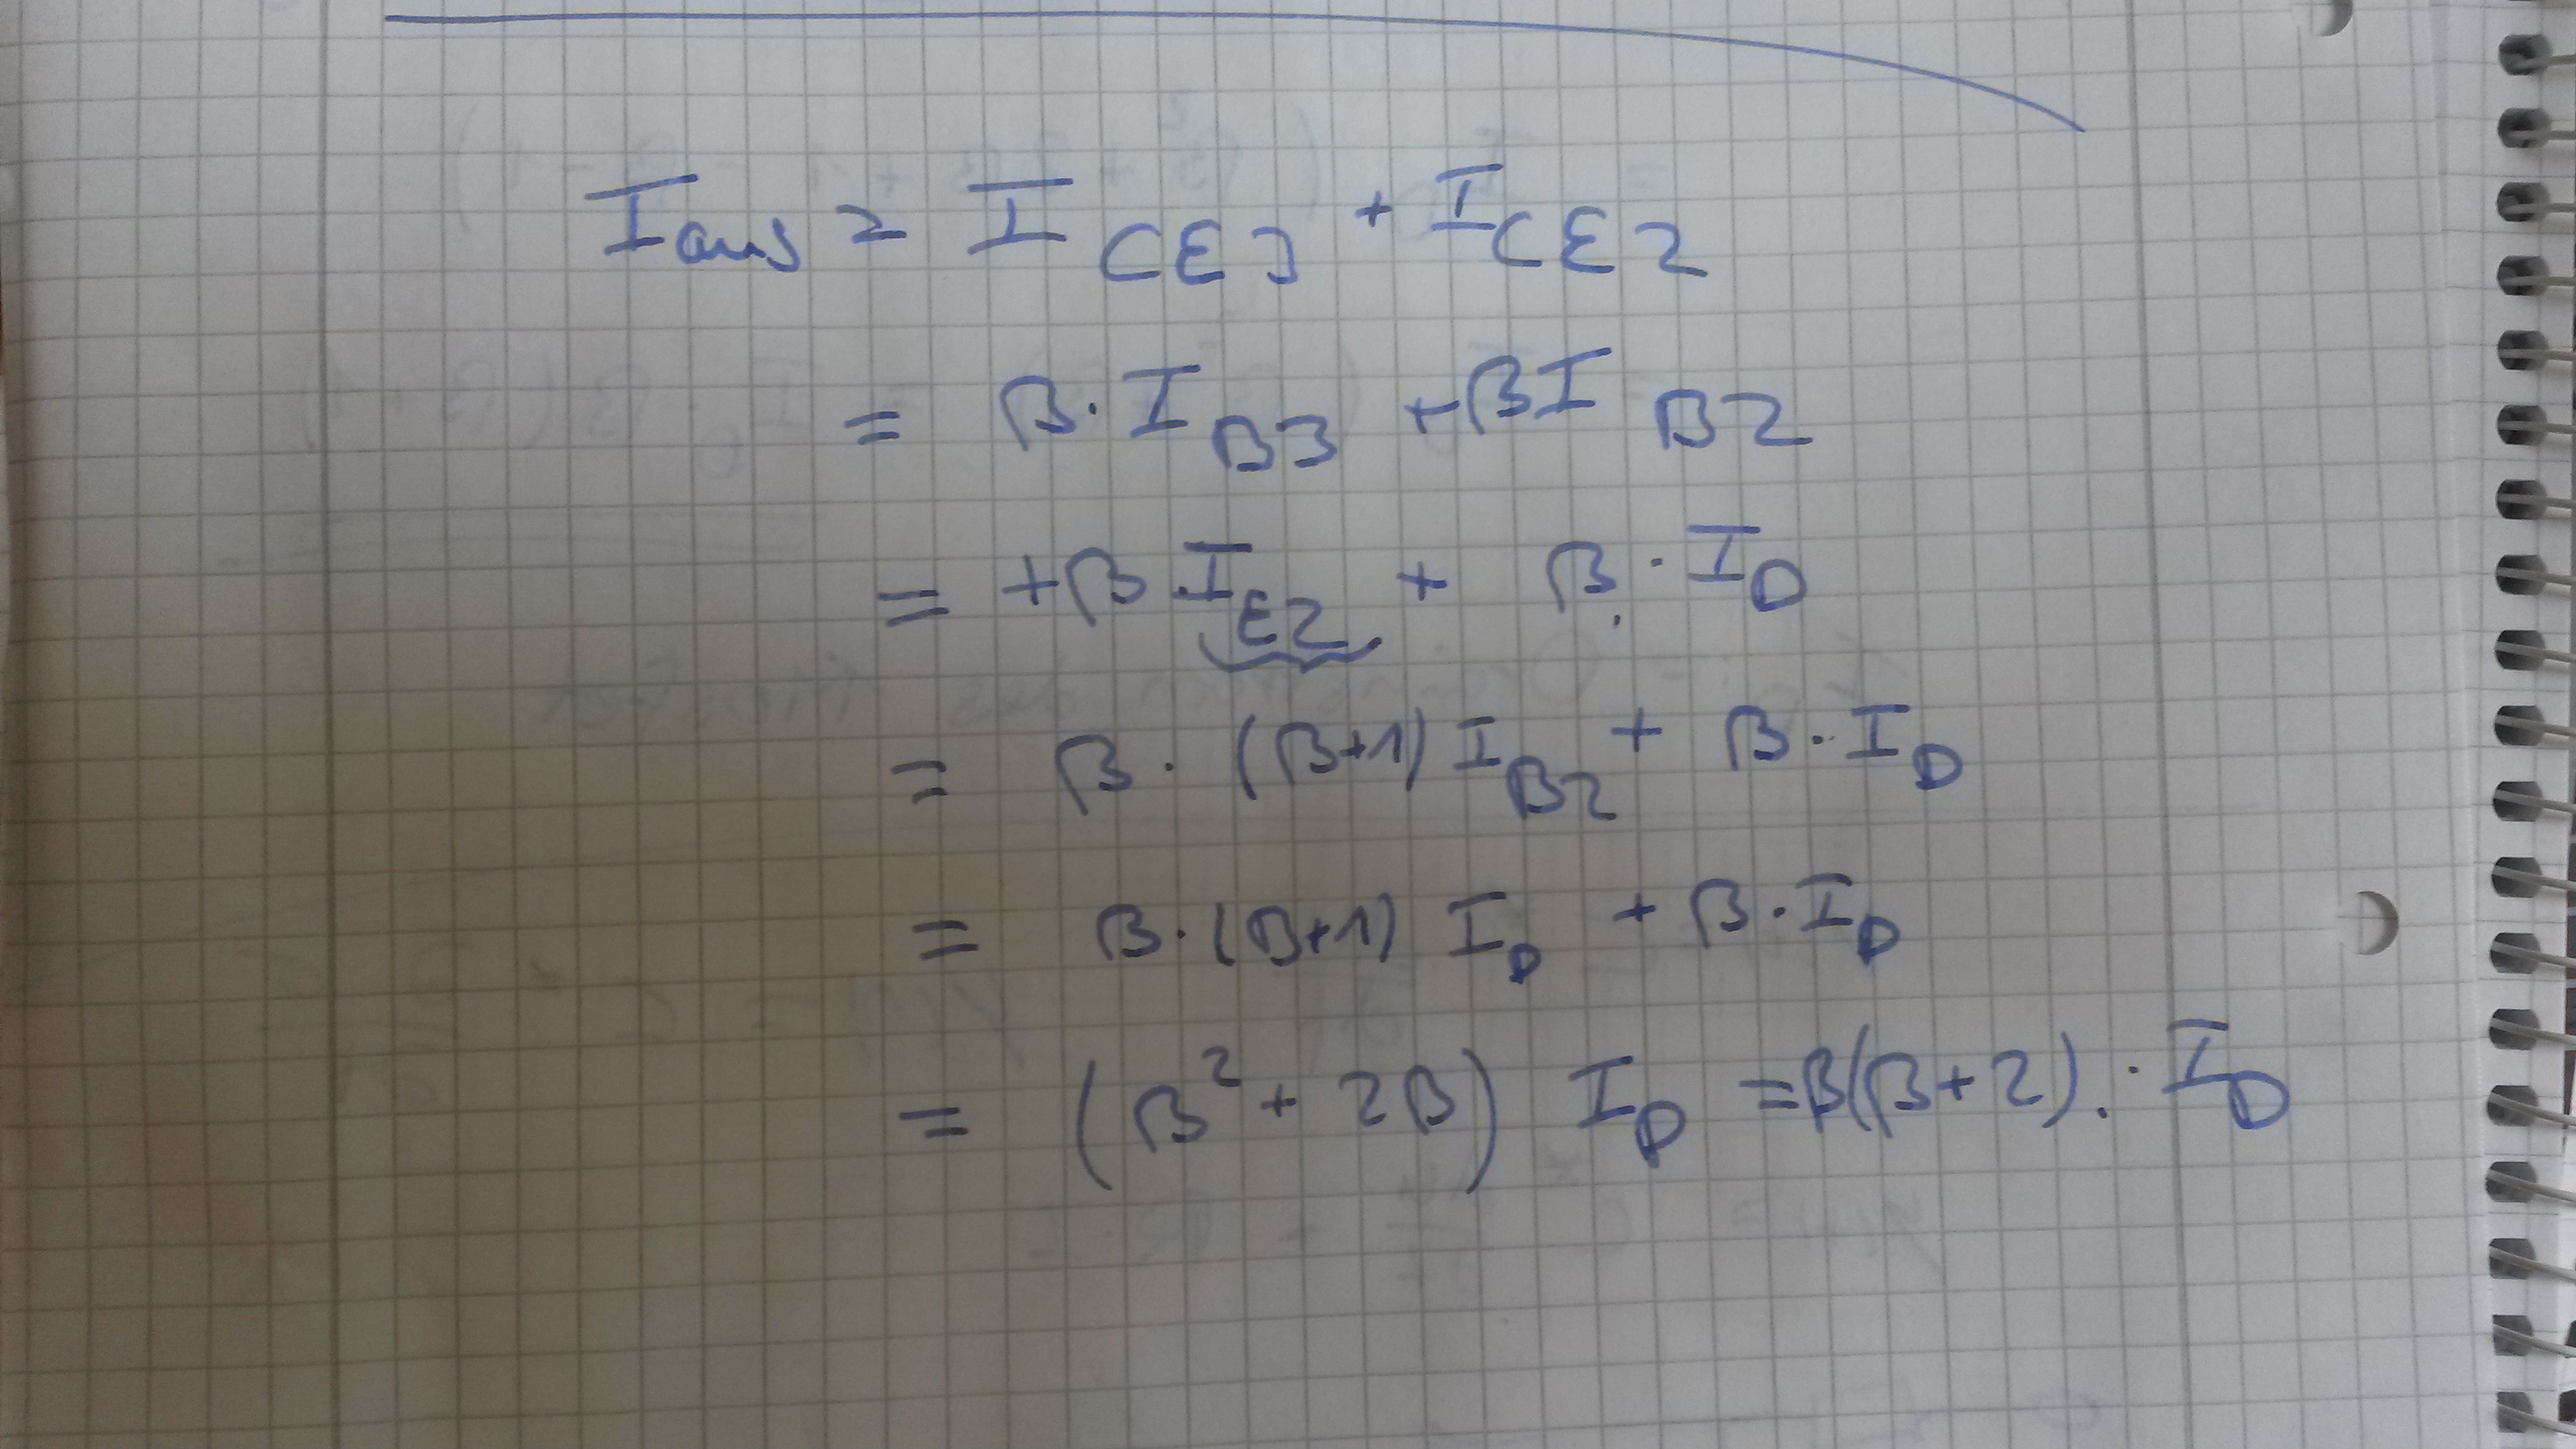 I_aus = I_CE3 + I_CE2
= β · I_B3 + β I_B2
= + β · I_E2 + β · I_D
= β · (β+1) I_B2 + β · I_D
= β · (β+1) I_D + β · I_D
= (β² + 2β) I_D = β(β+2) · I_D